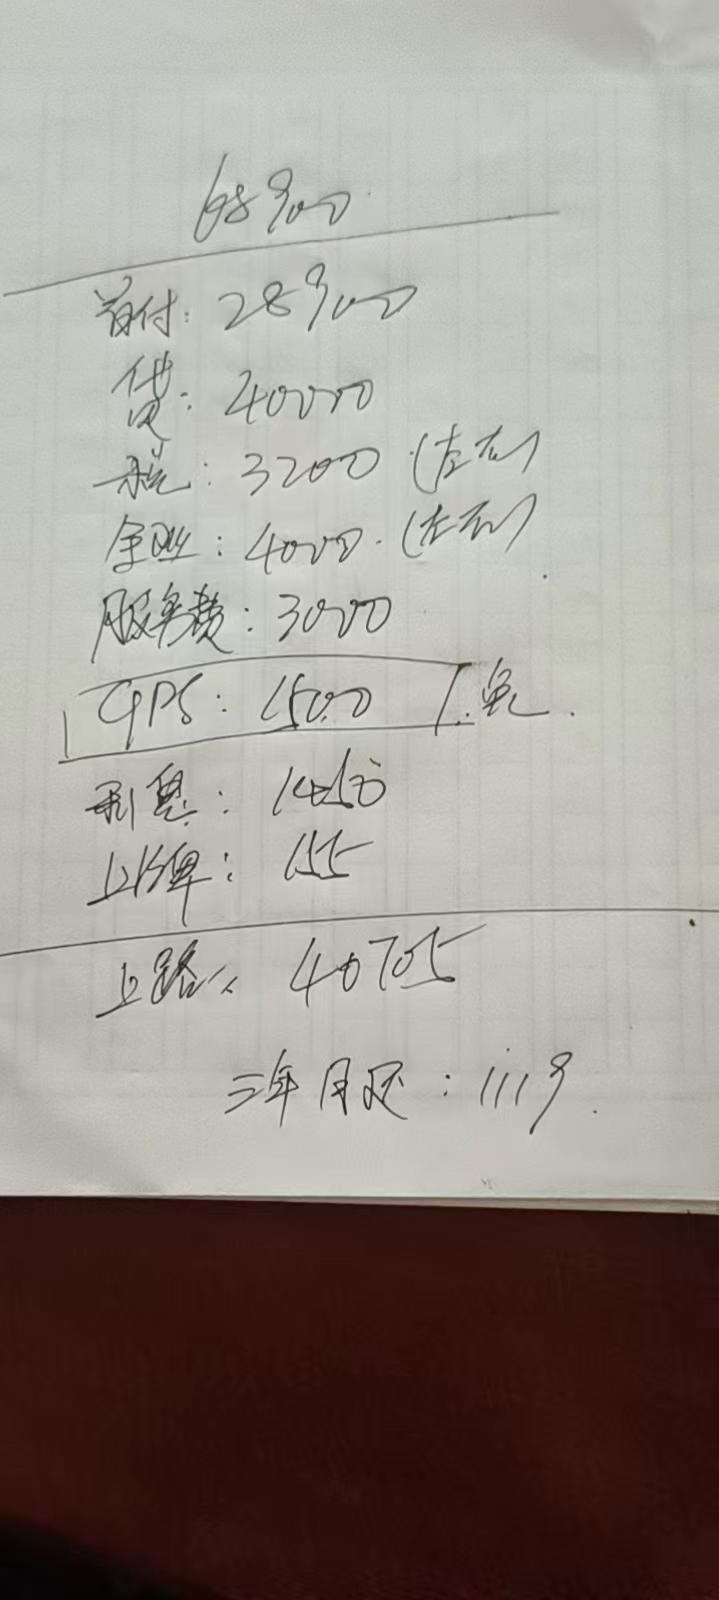 68900
首付: 28900
贷: 40000
税: 3200 (左右)
全险: 4000. (左右)
服务费: 3000
GPS: 1500 免.
利息: 1450
上牌: 155
上路: 40705
三年月还: 1119.